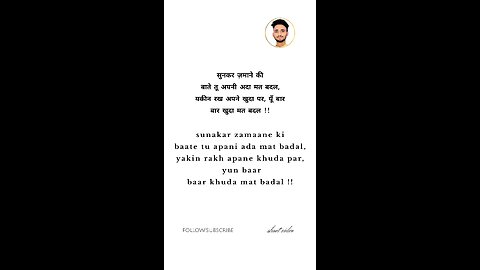 सुनकर ज़माने की
बाते तू अपनी अदा मत बदल,
यकीन रख अपने खुदा पर, यूँ बार
बार खुदा मत बदल !!
sunakar zamaane ki
baate tu apani ada mat badal,
yakin rakh apane khuda par,
yun baar
baar khuda mat badal !!
FOLLOW/SUBSCRIBE